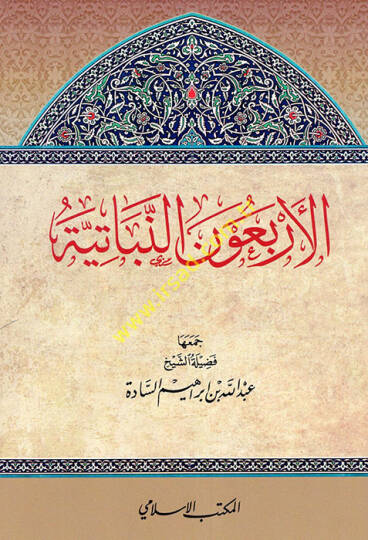 الأَرْبَعُونَ النَّبَاتِيَّةُ
جَمَعَهَا
فَضِيلَةُ الشَّيْخِ
عبدالله بن ابراهيم السَّادة
المكتب الاسلامي